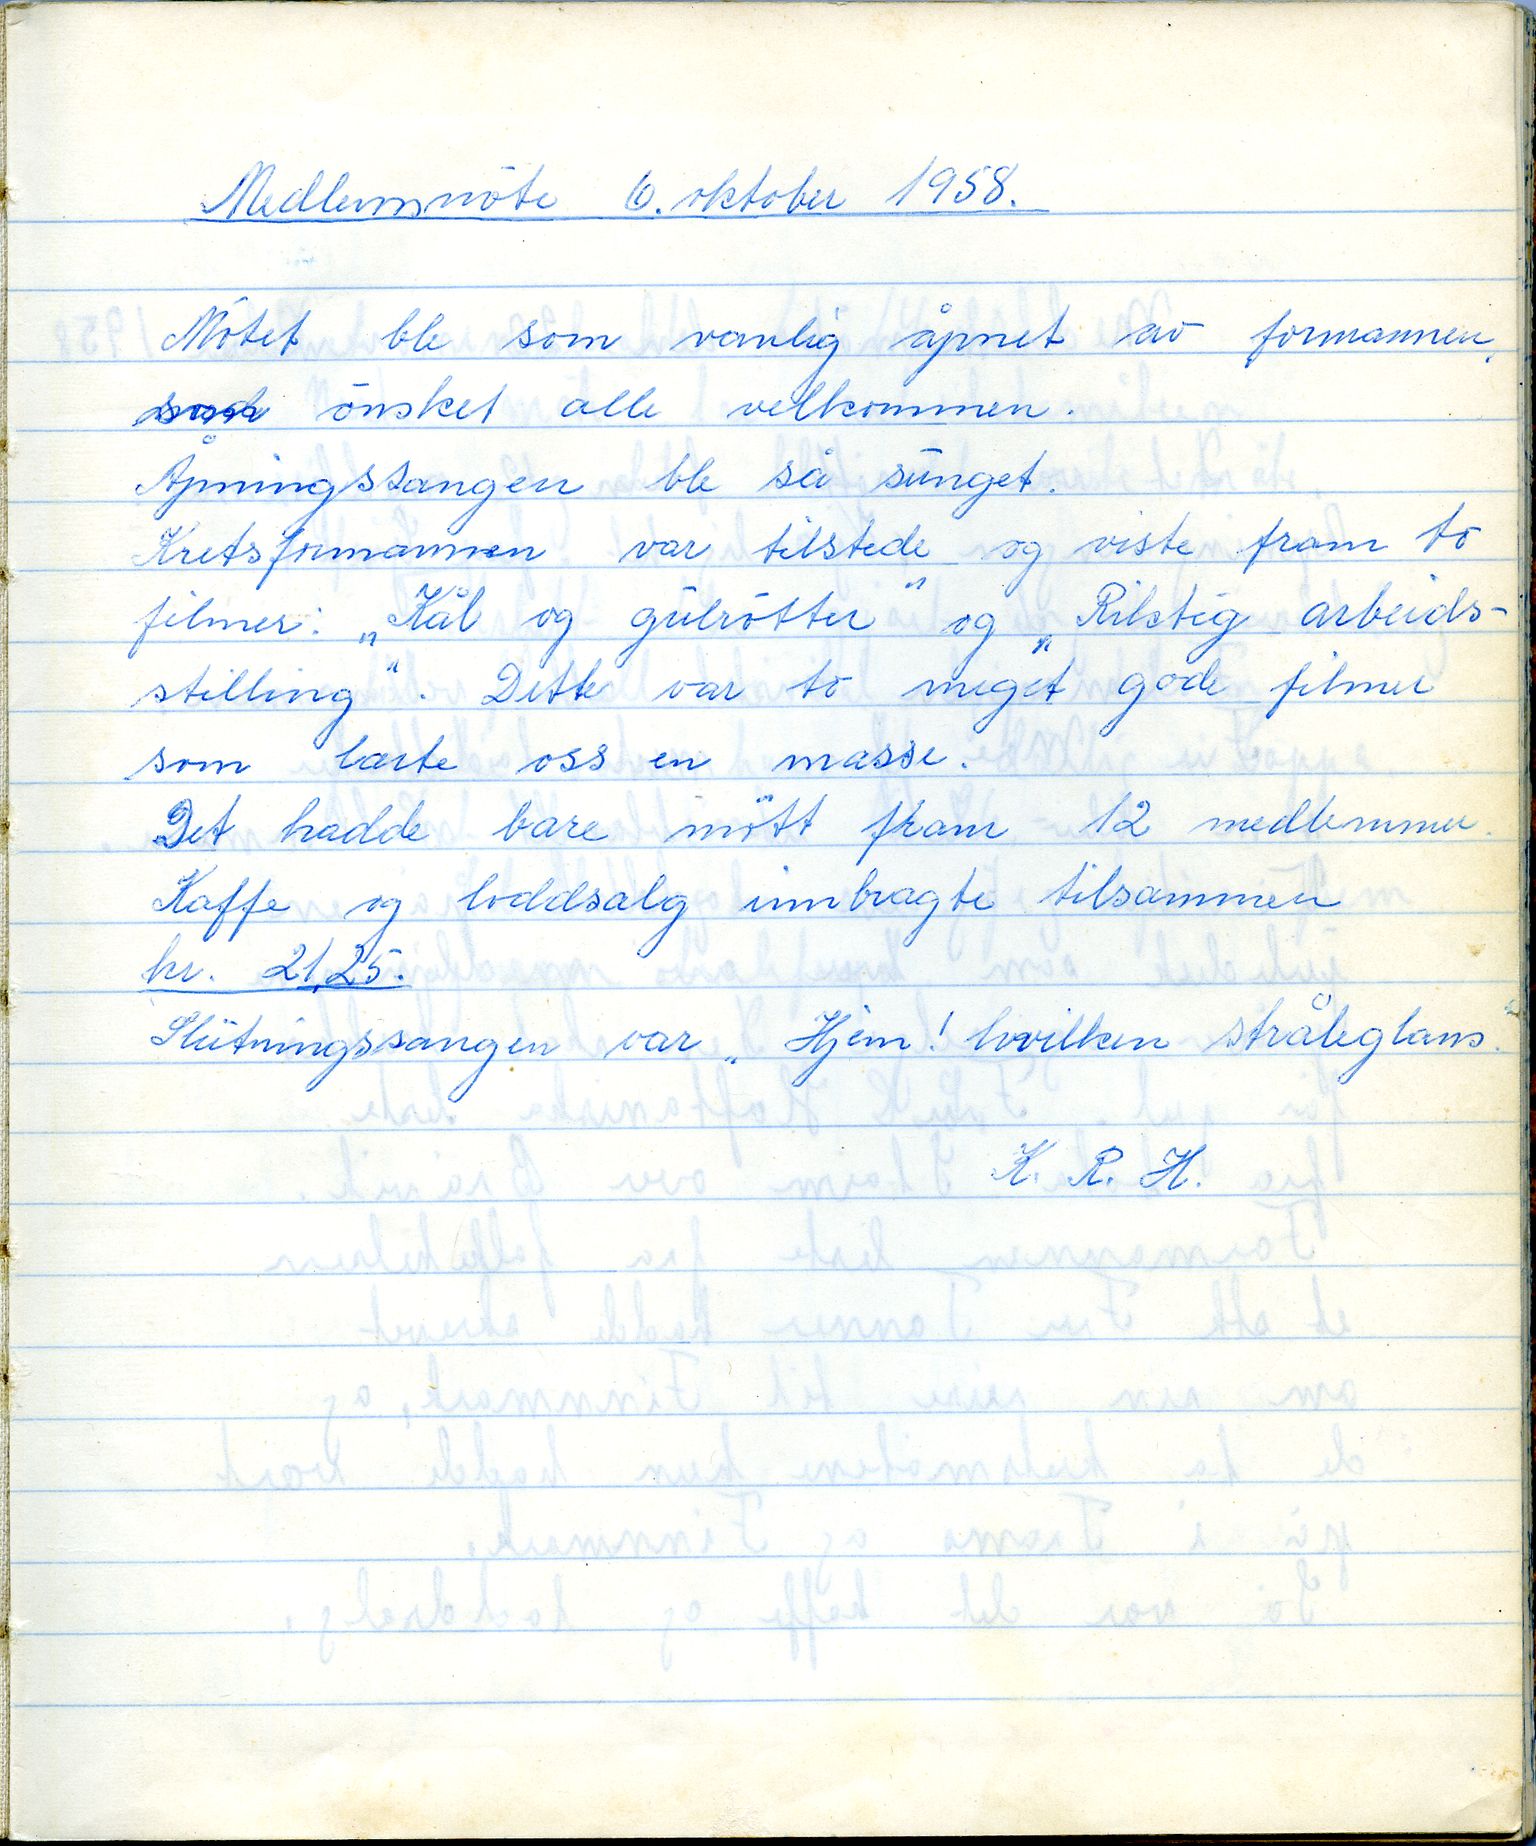 Medlemsmöte 6. oktober 1958.
Mötet ble som vanlig åpnet av formannen,
som önsket alle velkommen.
Åpningssangen ble så sunget.
Kretsformannen var tilstede og viste fram to
filmer: „Kål og gulrötter" og „Riktig arbeids-
stilling". Dette var to meget gode filmer
som lærte oss en masse.
Det hadde bare mött fram 12 medlemmer.
Kaffe og loddsalg innbragte tilsammen
kr. 21,25.
Slutningssangen var „Hjem! hvilken stråleglans."
K. R. H.